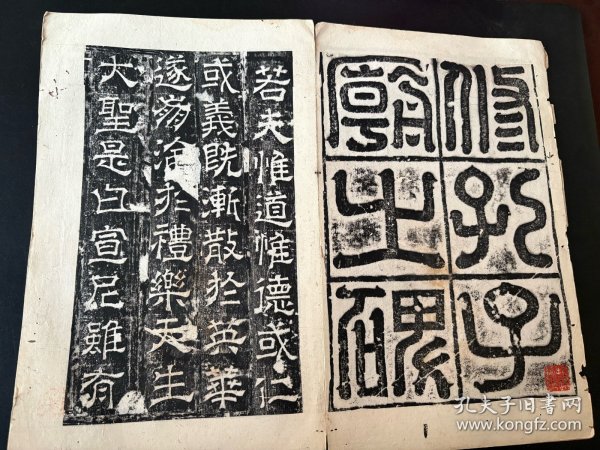 修孔子
廟之碑
若夫惟道惟德或仁
或義既漸散於英華
遂淪於禮樂天生
大聖是曰宣尼雖有
孔夫子旧书网
www.kongfz.com